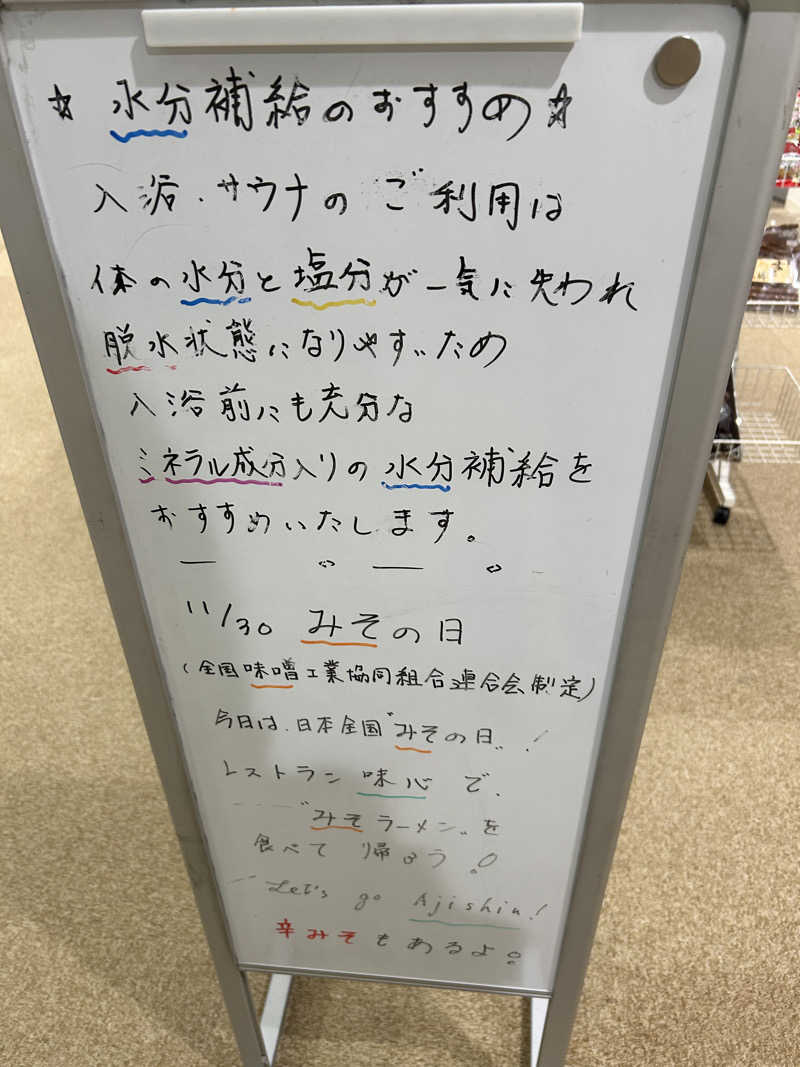 ☆ 水分補給のおすすめ☆
入浴・サウナのご利用は
体の水分と塩分が一気に失われ
脱水状態になりやすいため
入浴前にも充分な
ミネラル成分入りの水分補給を
おすすめいたします。
11/30 みその日
(全国味噌工業協同組合連合会制定)
今日は、日本全国"みその日"!
レストラン 味心 で、
"みそラーメン"を
食べて 帰ろう!
Let's go Ajishin!
辛みそもあるよ。